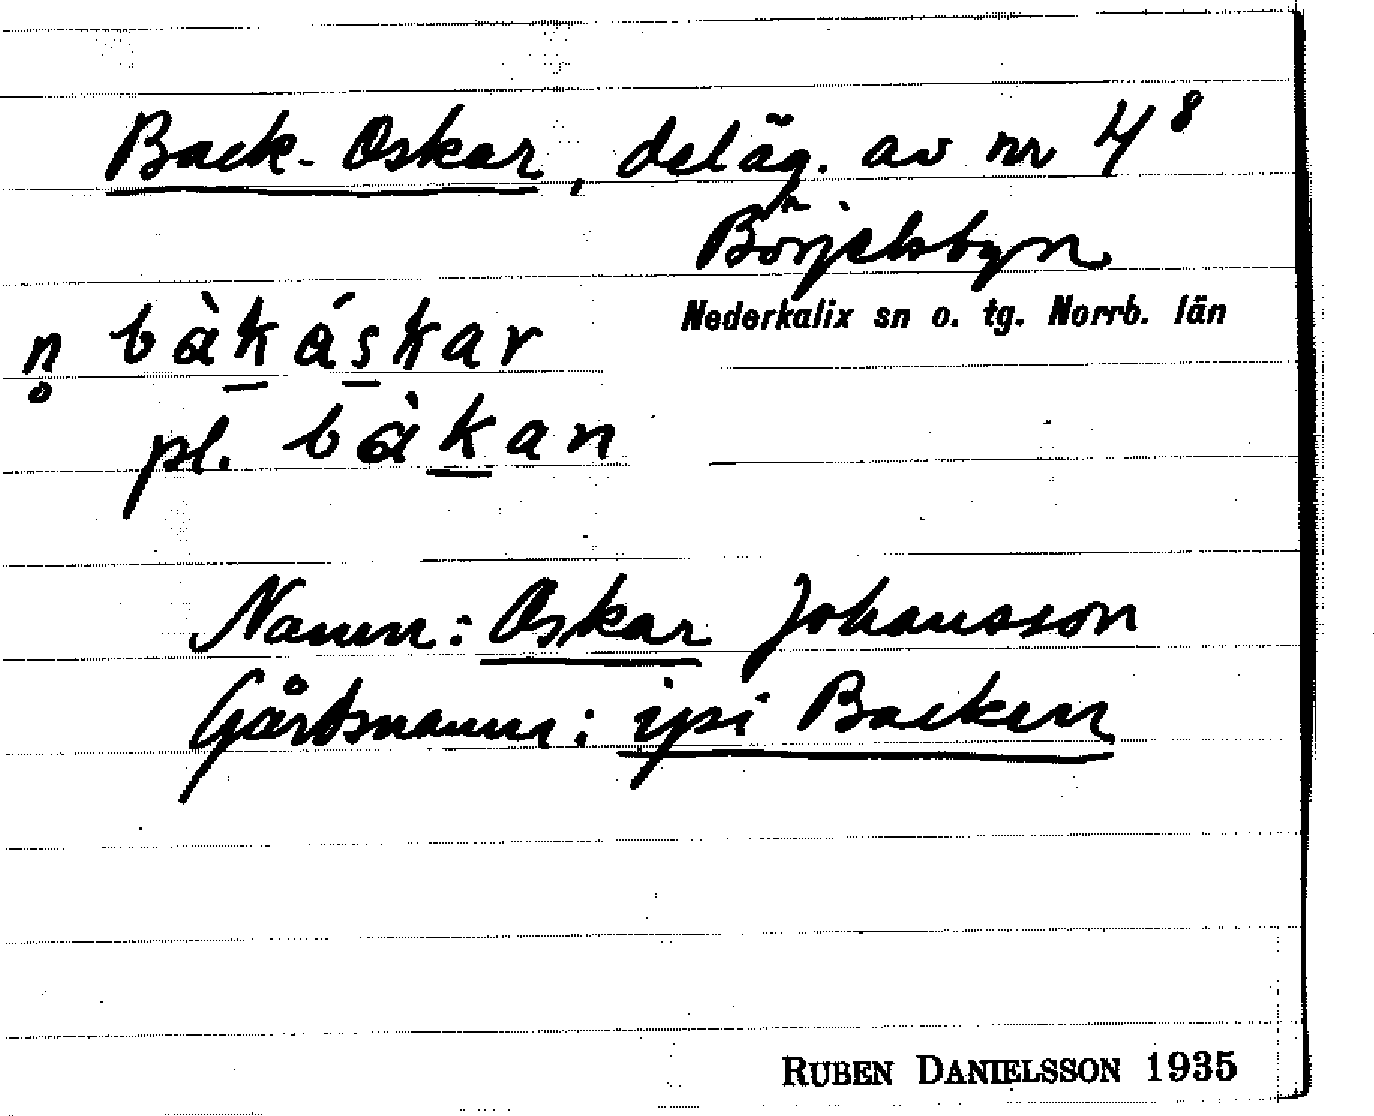 Back-Oskar, deläg. av nr 4⁸
Börjelsbyn
Nederkalix sn o. tg. Norrb. län
n̥ bàkáskar
pl. bàkan
Namn: Oskar Johansson
Gårdsnamn: ipi Backen
RUBEN DANIELSSON 1935